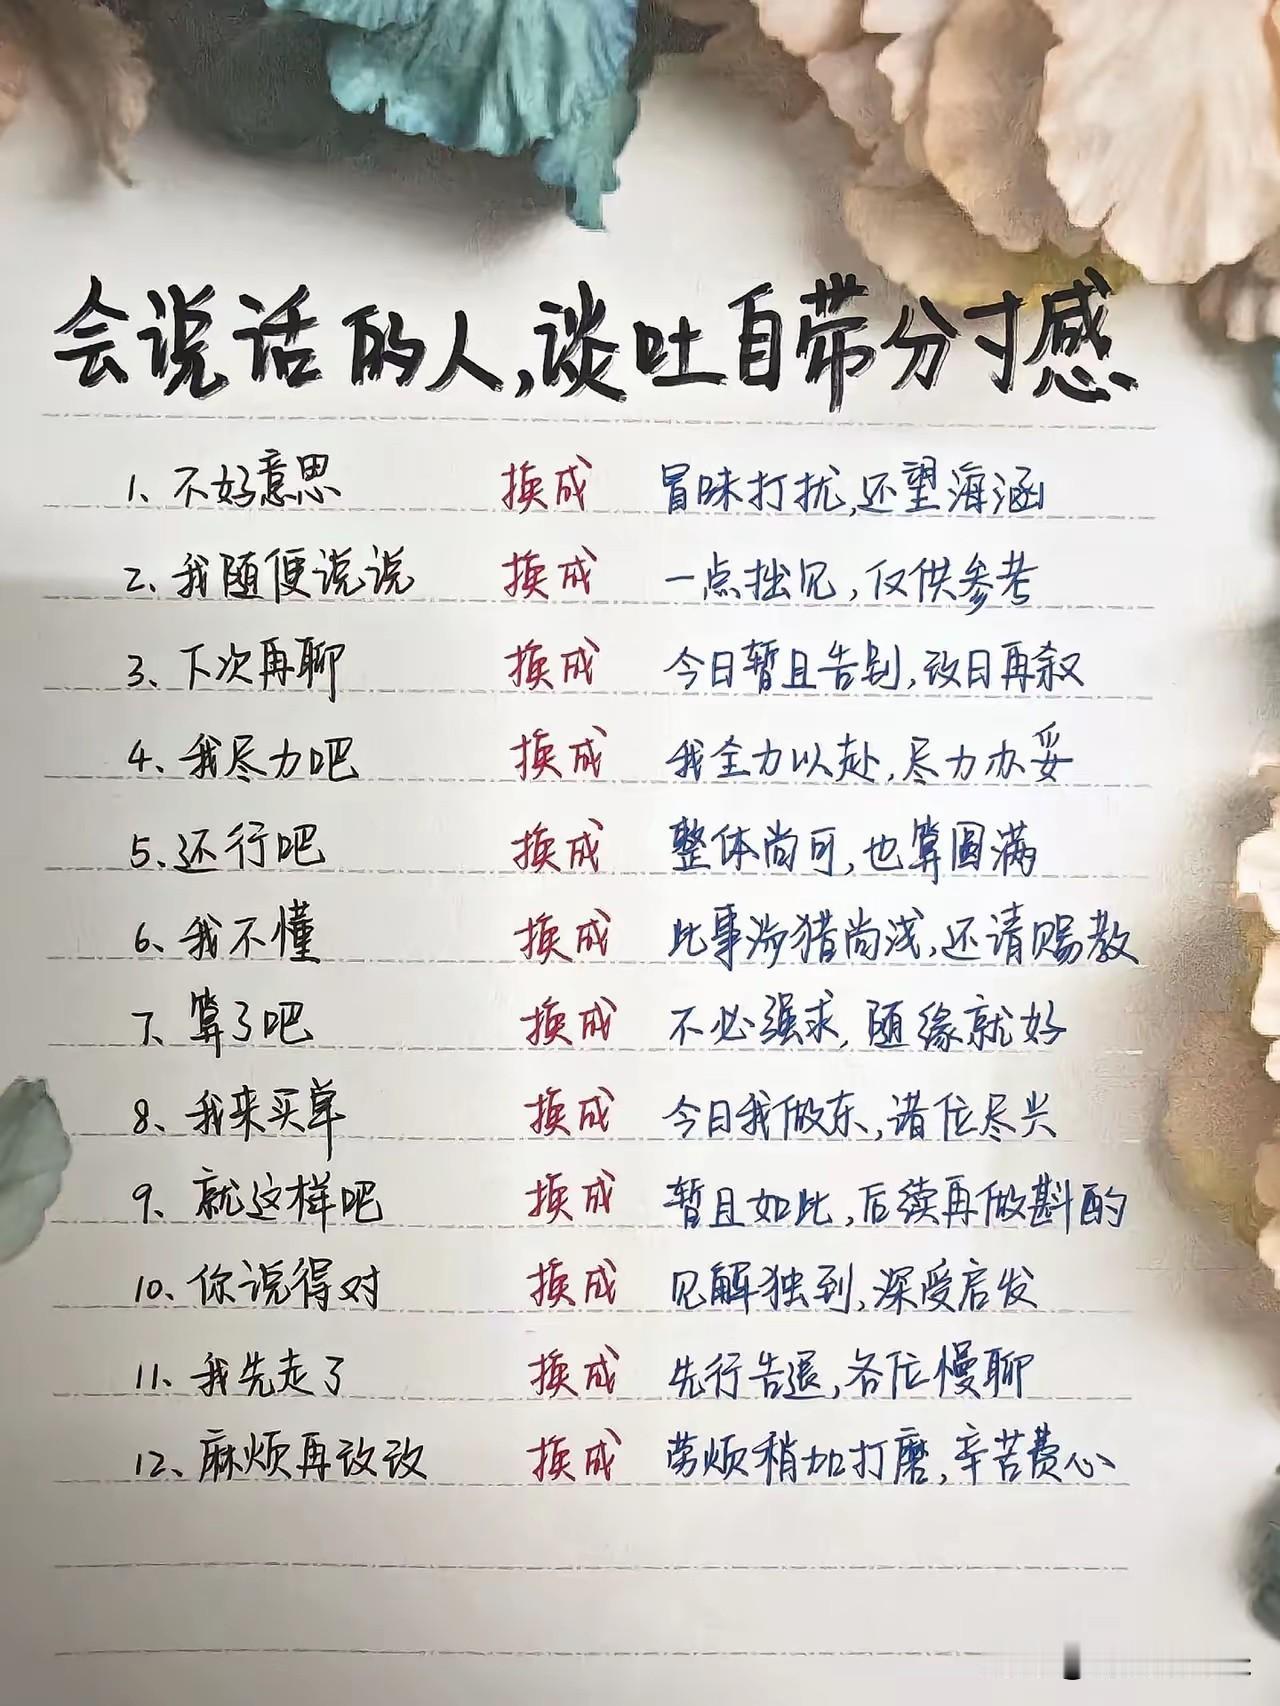 会说话的人,谈吐自带分寸感
1、不好意思 换成 冒昧打扰,还望海涵
2、我随便说说 换成 一点拙见,仅供参考
3、下次再聊 换成 今日暂且告别,改日再叙
4、我尽力吧 换成 我全力以赴,尽力办妥
5、还行吧 换成 整体尚可,也算圆满
6、我不懂 换成 此事涉猎尚浅,还请赐教
7、算了吧 换成 不必强求,随缘就好
8、我来买单 换成 今日我做东,诸位尽兴
9、就这样吧 换成 暂且如此,后续再做斟酌
10、你说得对 换成 见解独到,深受启发
11、我先走了 换成 先行告退,各位慢聊
12、麻烦再改改 换成 劳烦稍加打磨,辛苦费心